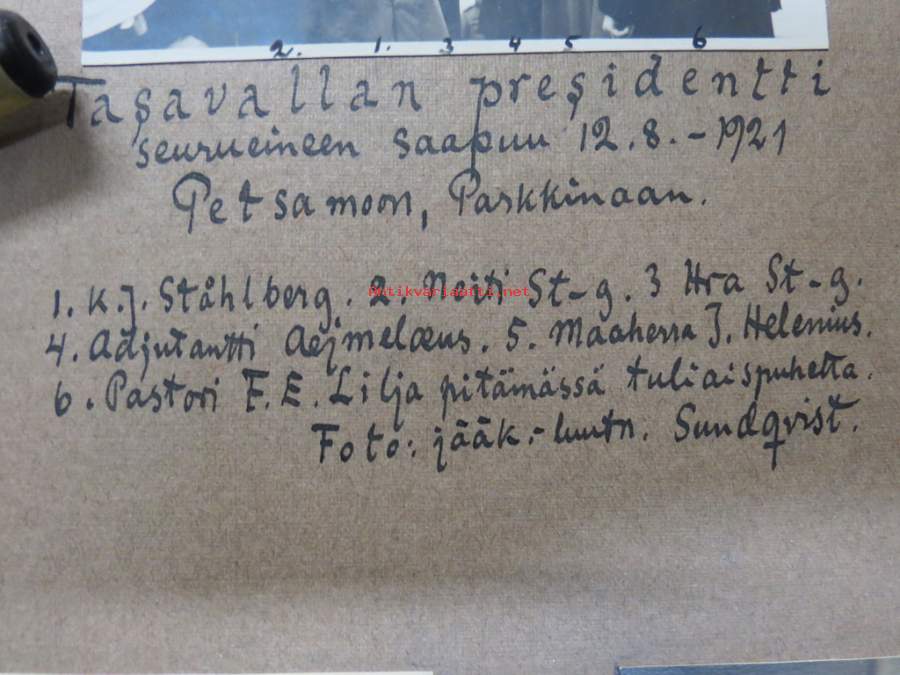 2. 1. 3 4 5 6
Tasavallan presidentti
seurueineen saapuu 12.8.-1921
Petsamoon, Parkkinaan.
1. K.J. Ståhlberg. 2. Neiti St-g. 3 Hra St-g.
antikvariaatti.net
4. Adjutantti Aejmelæus. 5. Maaherra J. Helenius.
6. Pastori F.E. Lilja pitämässä tuliaispuhetta.
Foto: jääk.-luutn. Sundqvist.